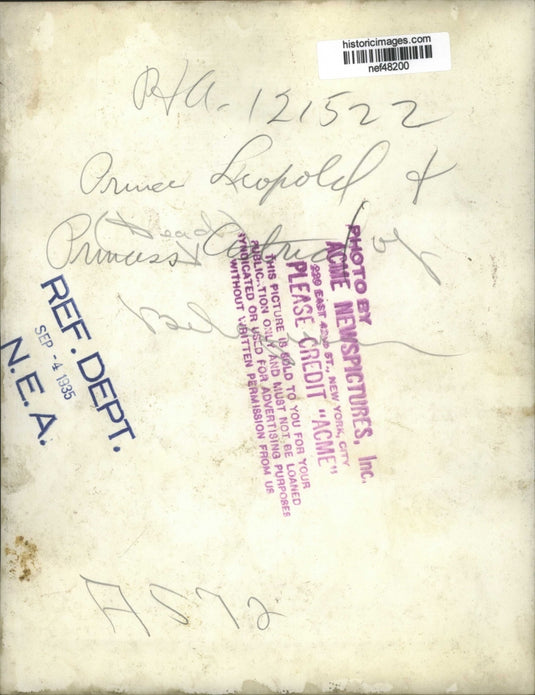 historicimages.com
nef48200
P/A. 121522
Prince Leopold &
(Dead)
Princess Astrid of
Belgium
REF. DEPT.
SEP -4 1935
N.E.A.
PHOTO BY
ACME NEWSPICTURES, Inc.
220 EAST 42ND ST., NEW YORK CITY
PLEASE CREDIT "ACME"
THIS PICTURE IS SOLD TO YOU FOR YOUR
PUBLICATION ONLY AND MUST NOT BE LOANED
SYNDICATED OR USED FOR ADVERTISING PURPOSES
WITHOUT WRITTEN PERMISSION FROM US